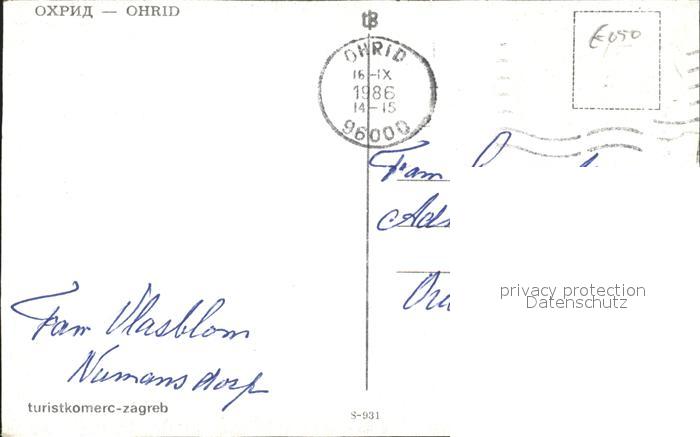 ОХРИД — OHRID
OHRID
16-IX
1986
14-15
96000
€050
Fam
privacy protection
Datenschutz
Fam Vlasblom
Numansdorp
turistkomerc-zagreb
S-931